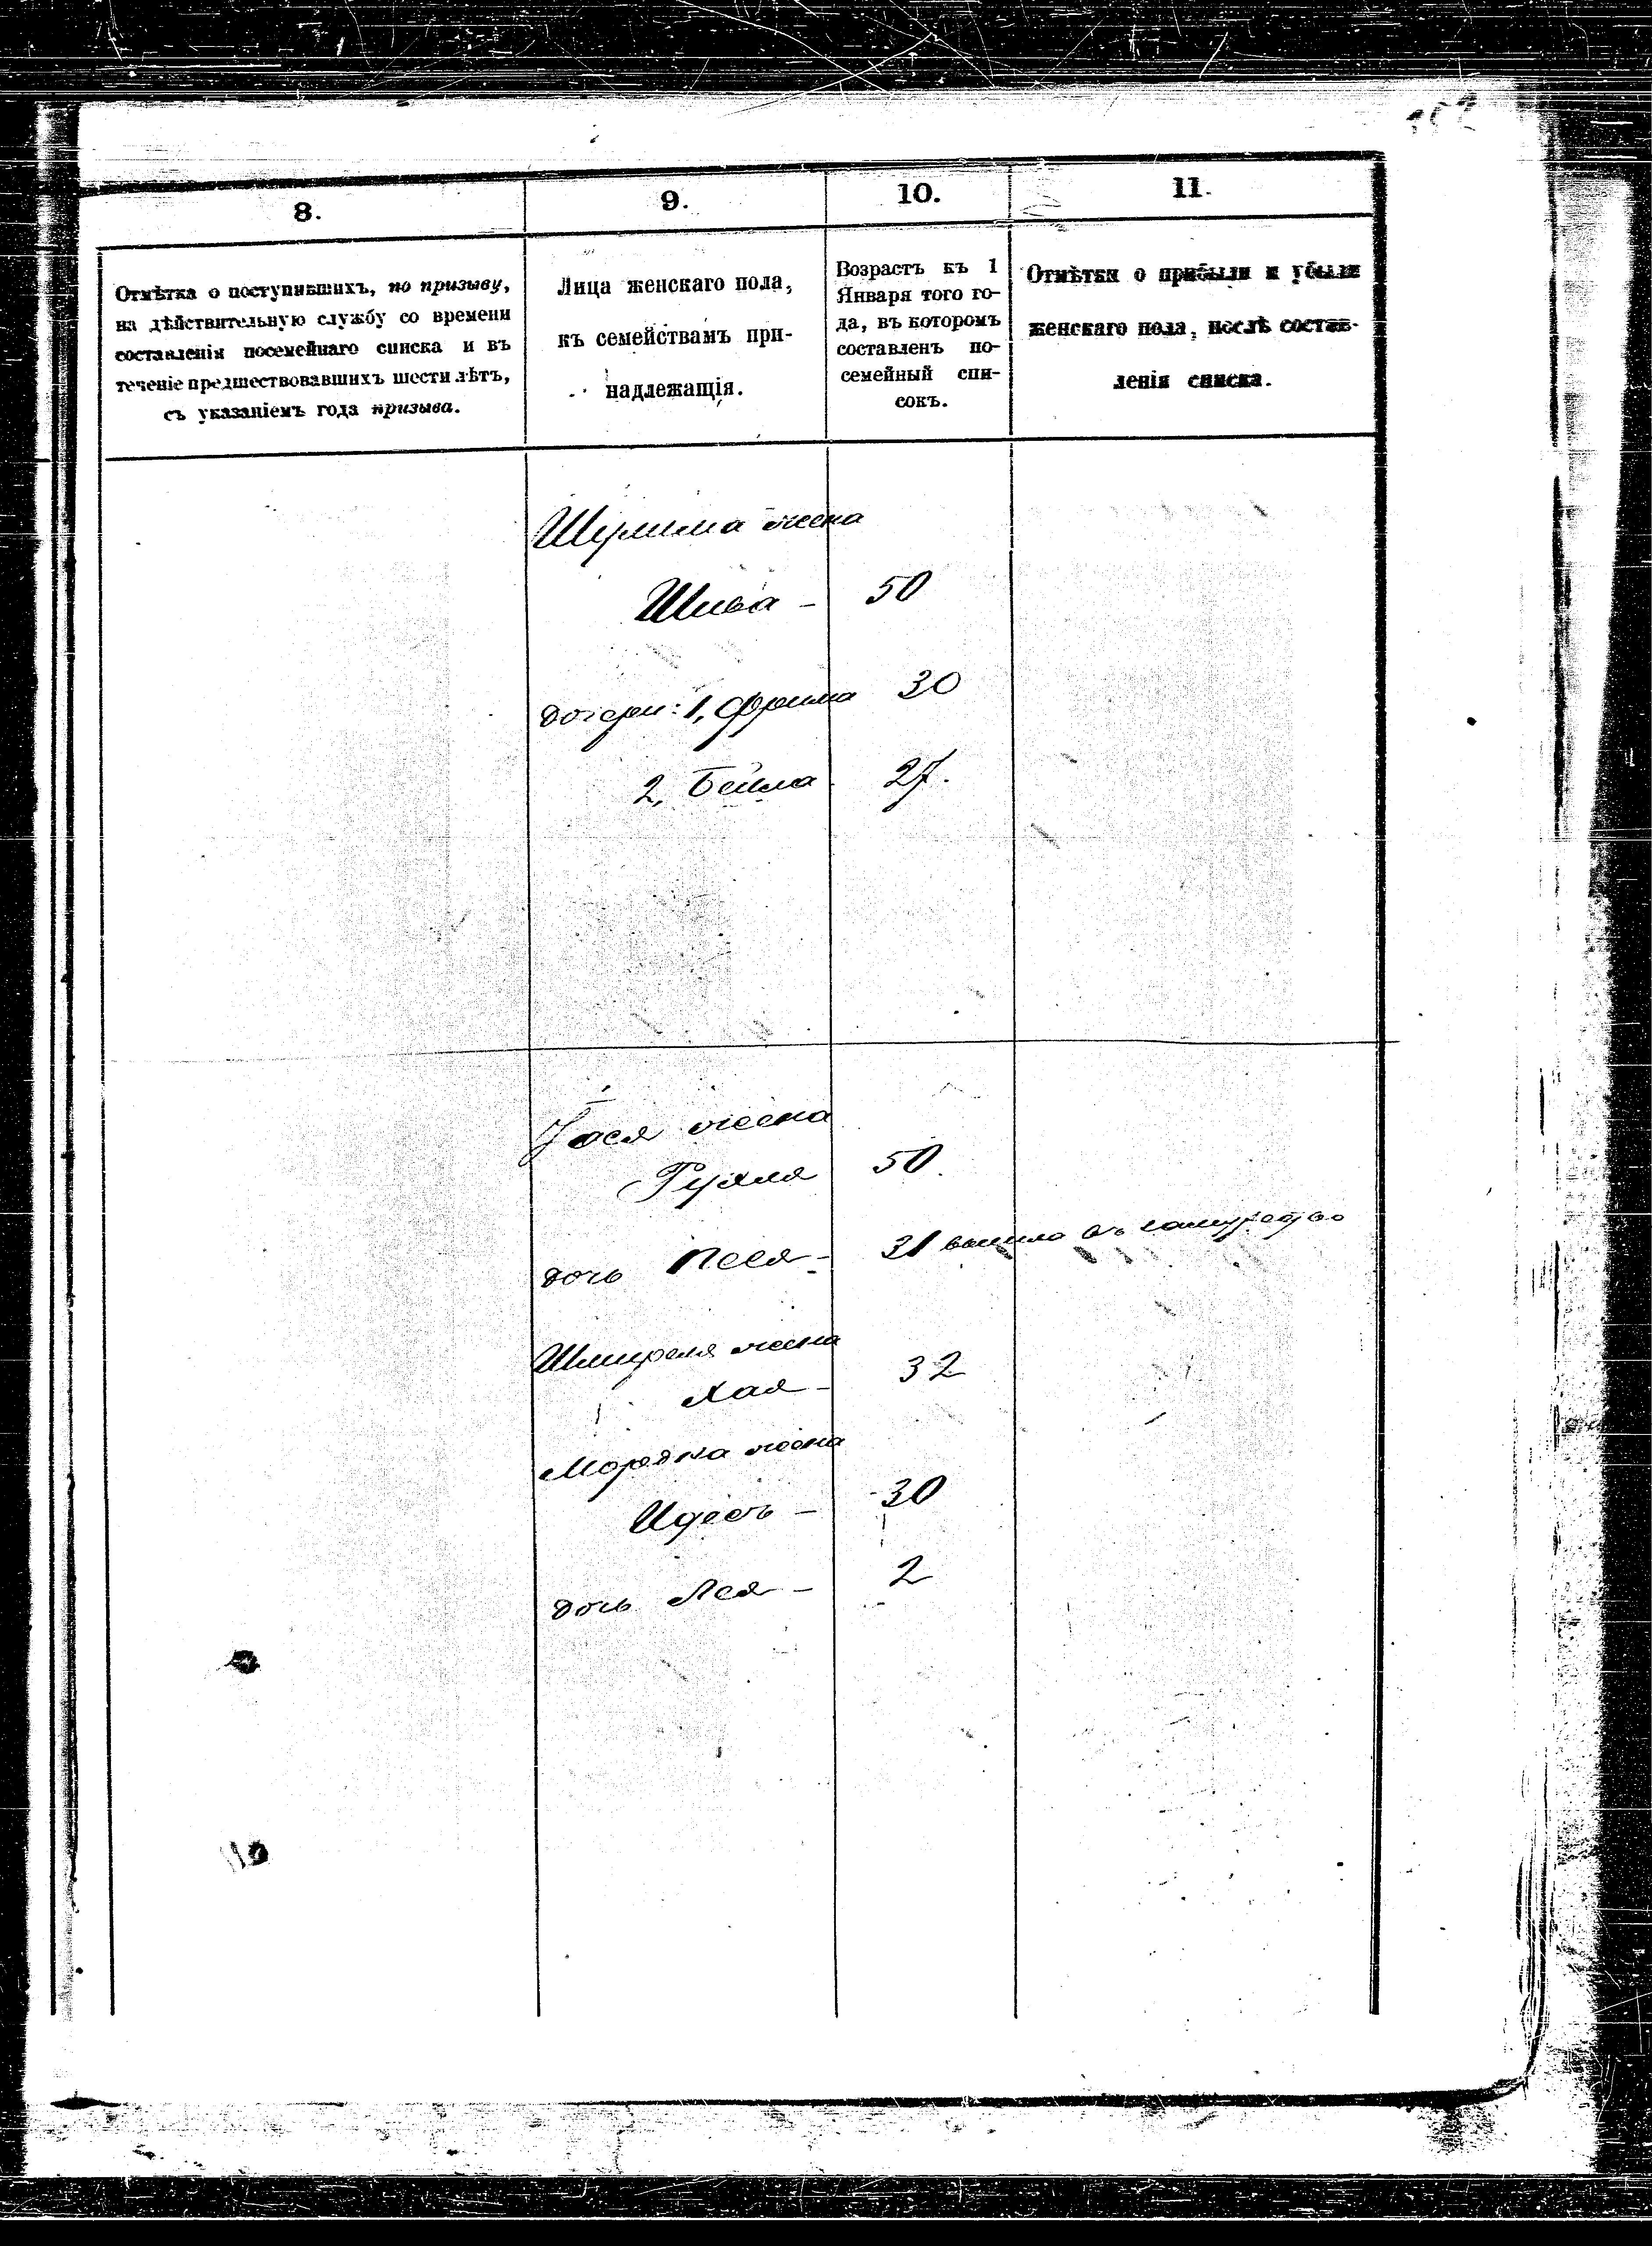 8.
9.
10.
11.
Отмѣтка о поступившихъ, по призыву,
на дѣйствительную службу со времени
составленія посемейнаго списка и въ
теченіе предшествовавшихъ шести лѣтъ,
съ указаніемъ года призыва.
Лица женскаго пола,
къ семействамъ при-
надлежащія.
Возрастъ къ 1
Января того го-
да, въ которомъ
составленъ по-
семейный спи-
сокъ.
Отмѣтки о прибыли и убыли
женскаго пола, послѣ состав-
ленія списка.
Шулима жена
Шива - 50
дочери: 1, Фрима 30
2, Бейла 27.
жена
Рухля 50.
дочь Песя - 31 вышла въ замужество
жена
Хая - 32
Мордка жена
Идесь - 30
дочь Лея - 2